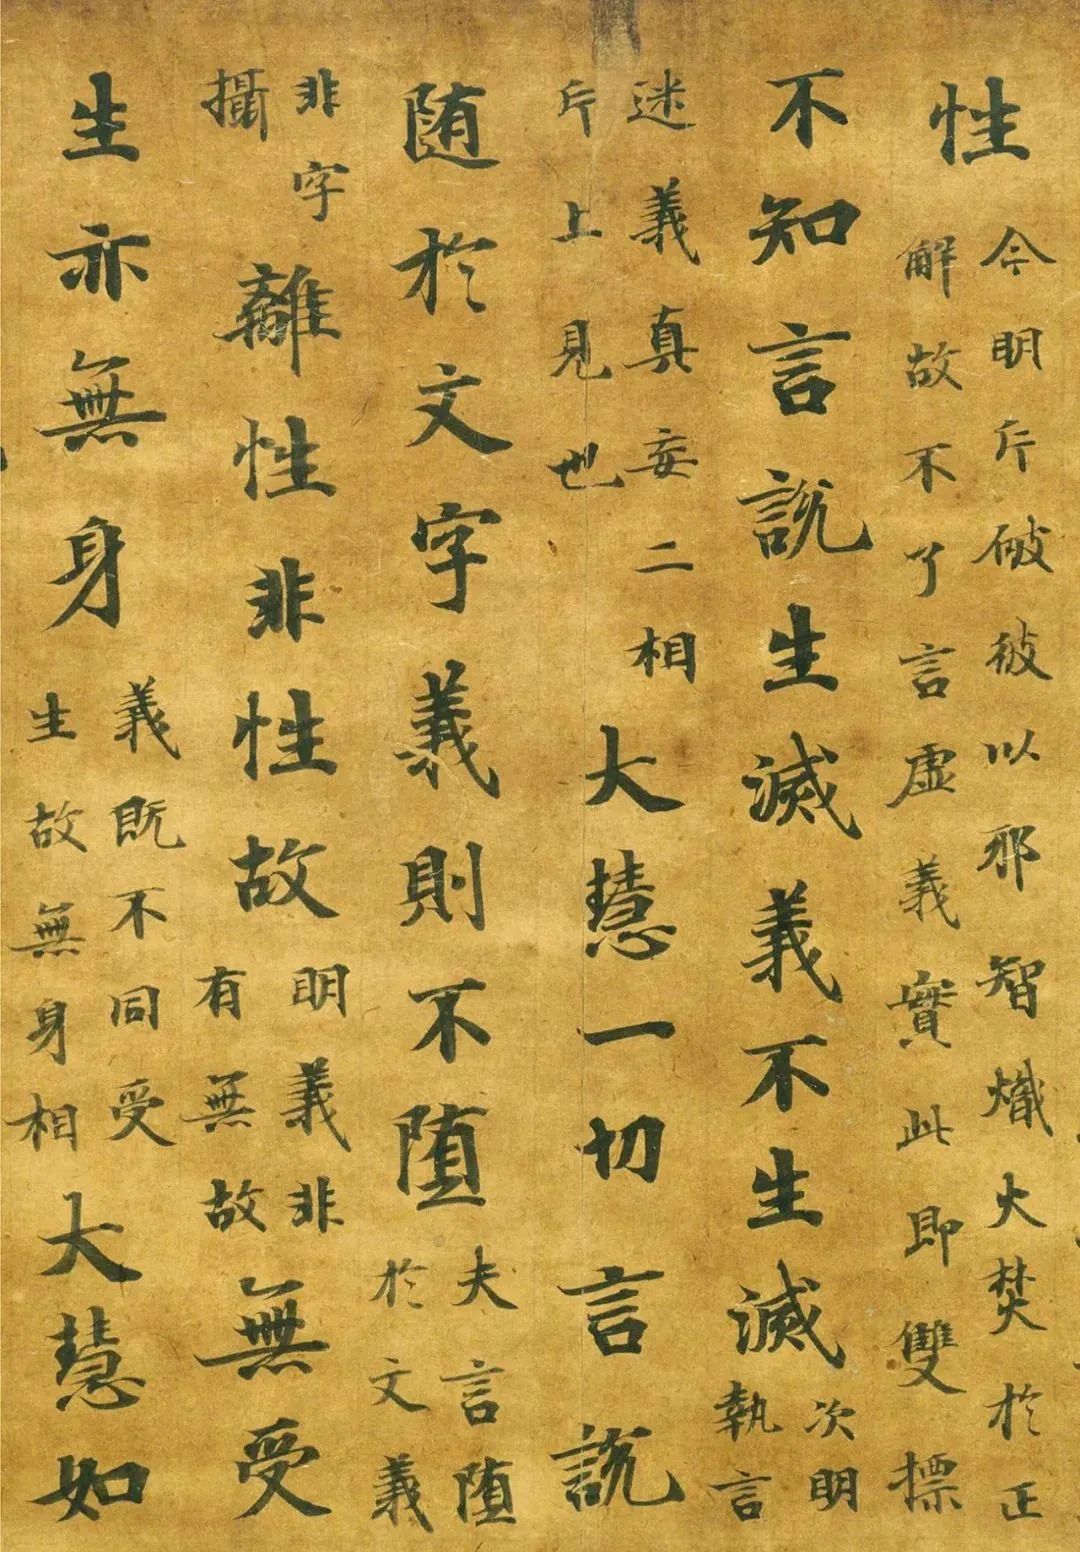 性今明斥破彼以邪智熾火焚於正
解故不了言虛義實此即雙標
不知言說生滅義不生滅次明
執言
迷義真妄二相
斥上見也大慧一切言說
堕於文字義則不堕夫言堕
於文義
非字
攝離性非性故明義非
有無故無受
生亦無身義既不同受
生故無身相大慧如